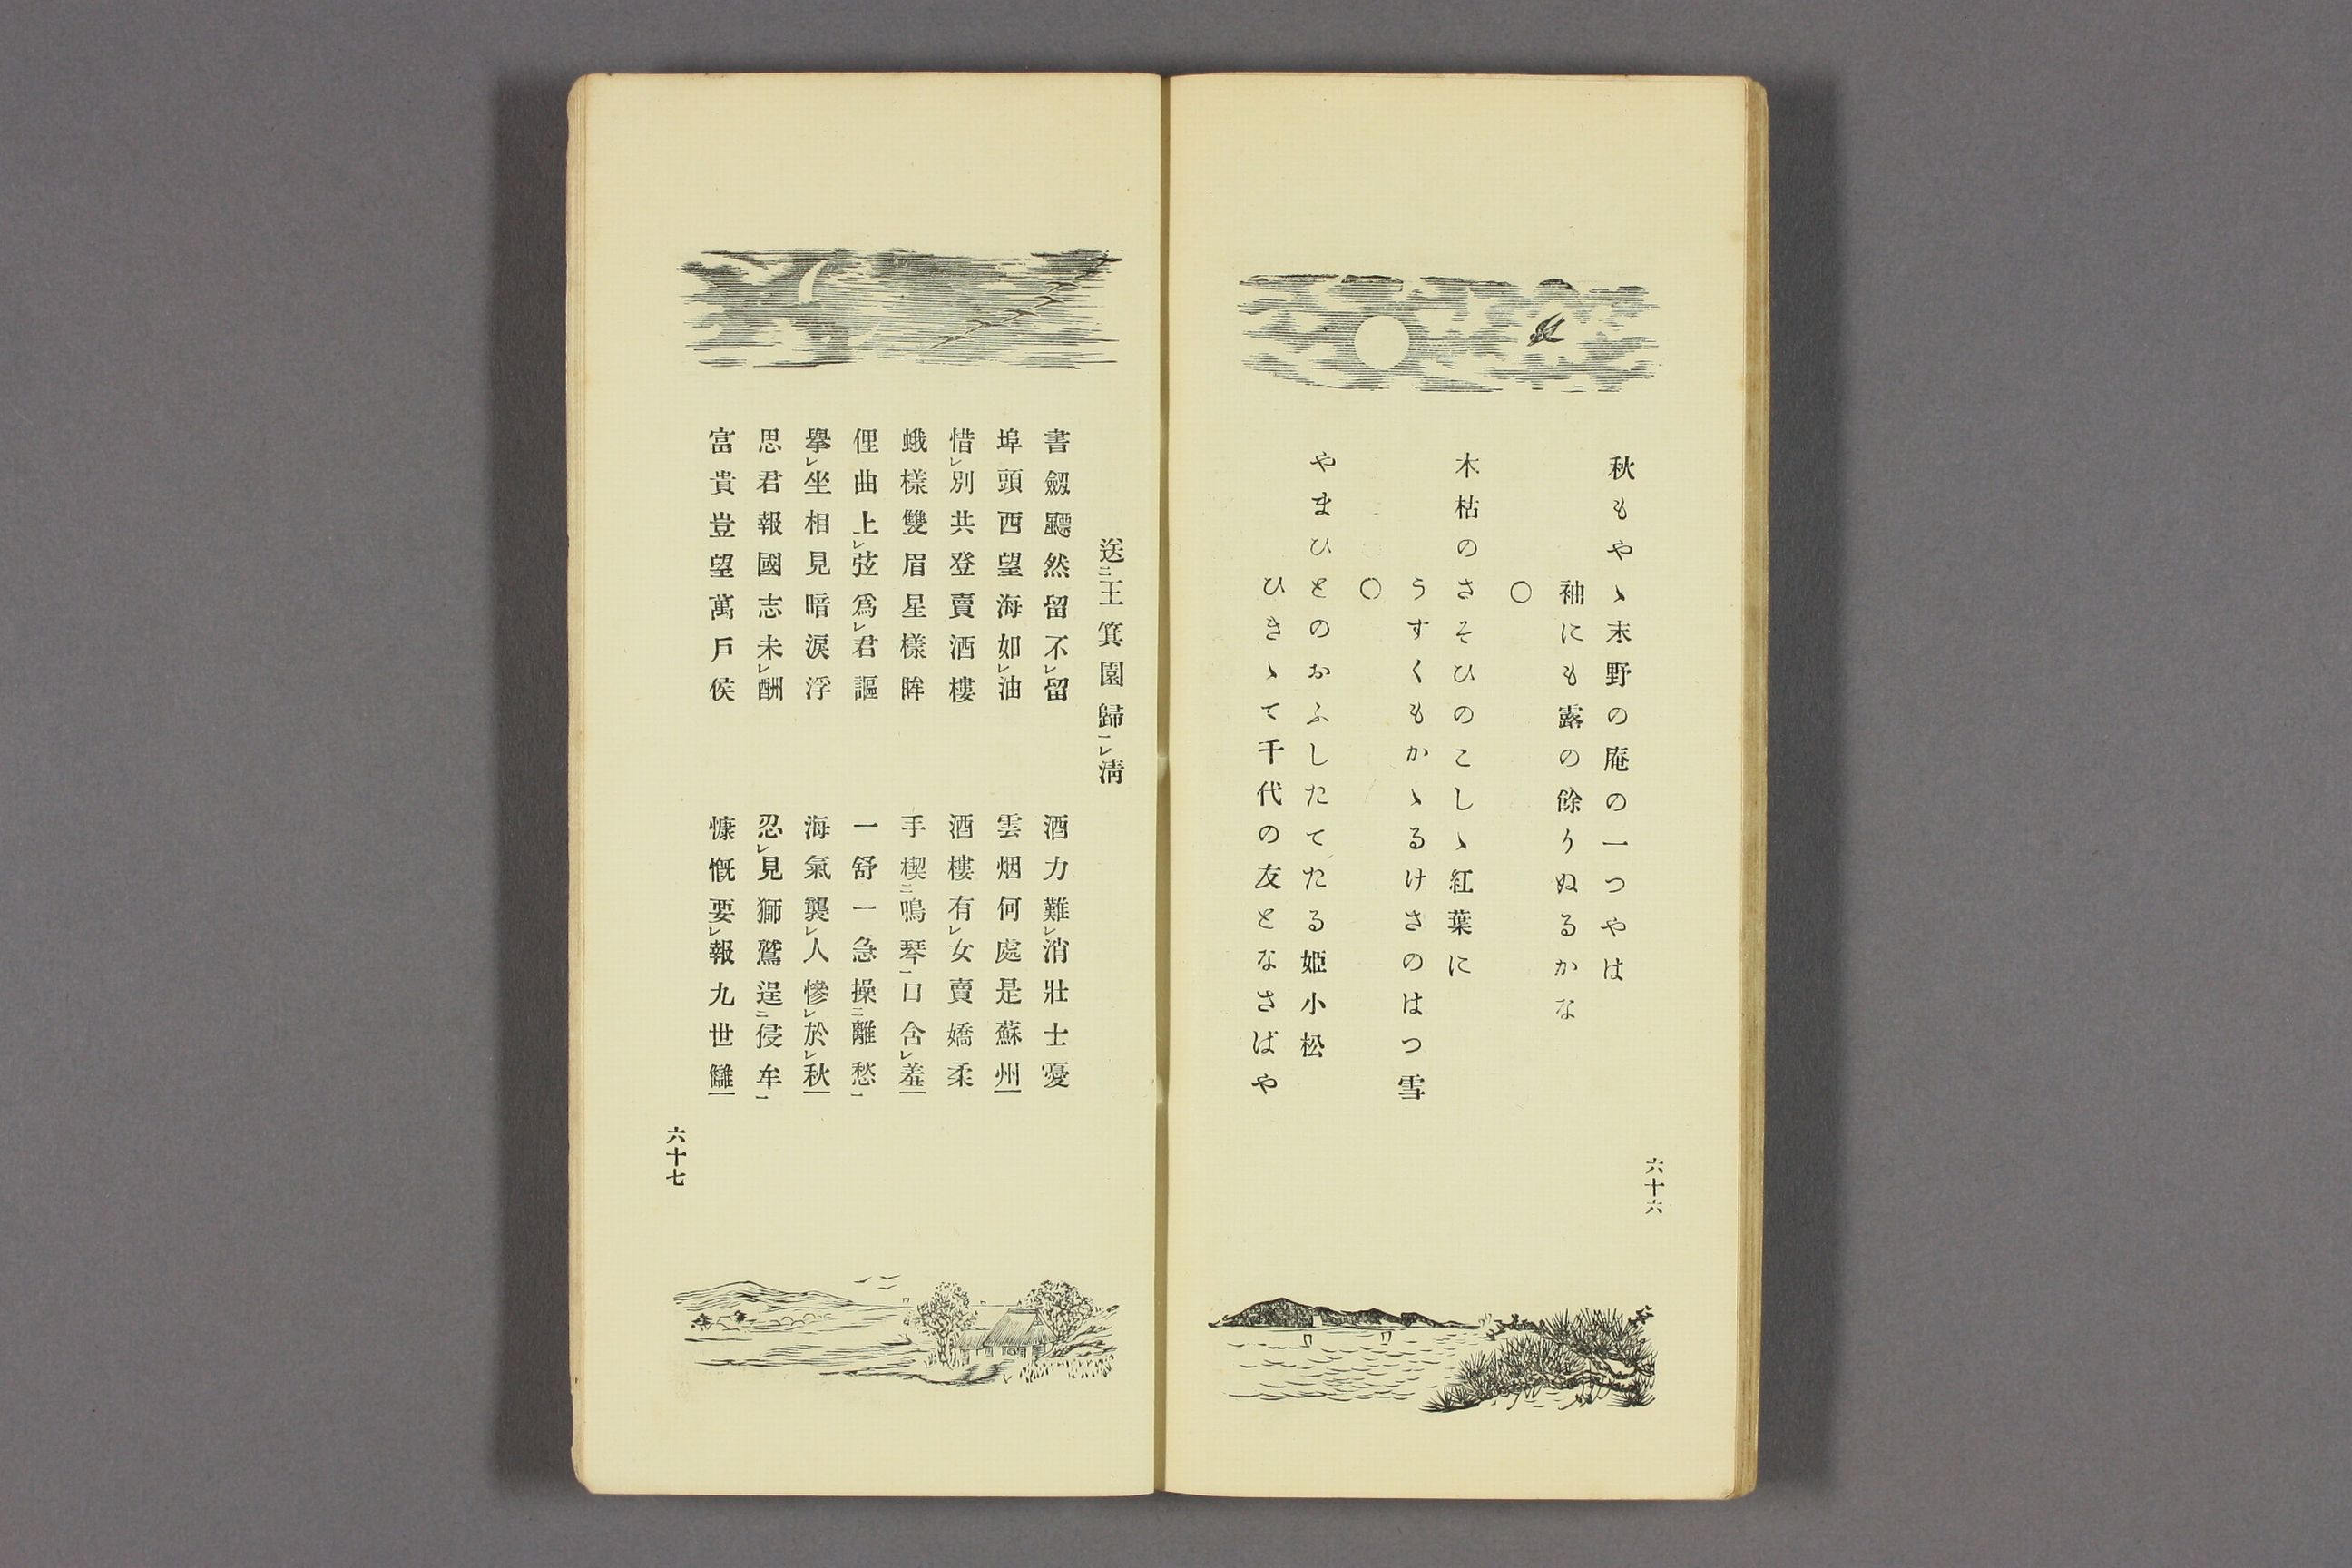 秋もやゝ末野の庵の一つやは
袖にも露の餘りぬるかな
○
木枯のさそひのこしゝ紅葉に
うすくもかゝるけさのはつ雪
○
やまひとのおふしたてたる姫小松
ひきゝて千代の友となさばや
六十六
送二王箕園歸一レ淸
書劔飄然留不レ留　酒力難レ消壯士憂
埠頭西望海如レ油　雲烟何處是蘇州一
惜レ別共登賣酒樓　酒樓有レ女賣嬌柔
蛾樣雙眉星樣眸　手楔二鳴琴一口含レ羞一
俚曲上レ弦爲レ君謳　一舒一急操二離愁一
擧レ坐相見暗淚浮　海氣襲レ人慘レ於レ秋一
思君報國志未レ酬　忍レ見獅鷲逞二侵牟一
富貴豈望萬戶侯　慷慨要レ報九世讎一
六十七